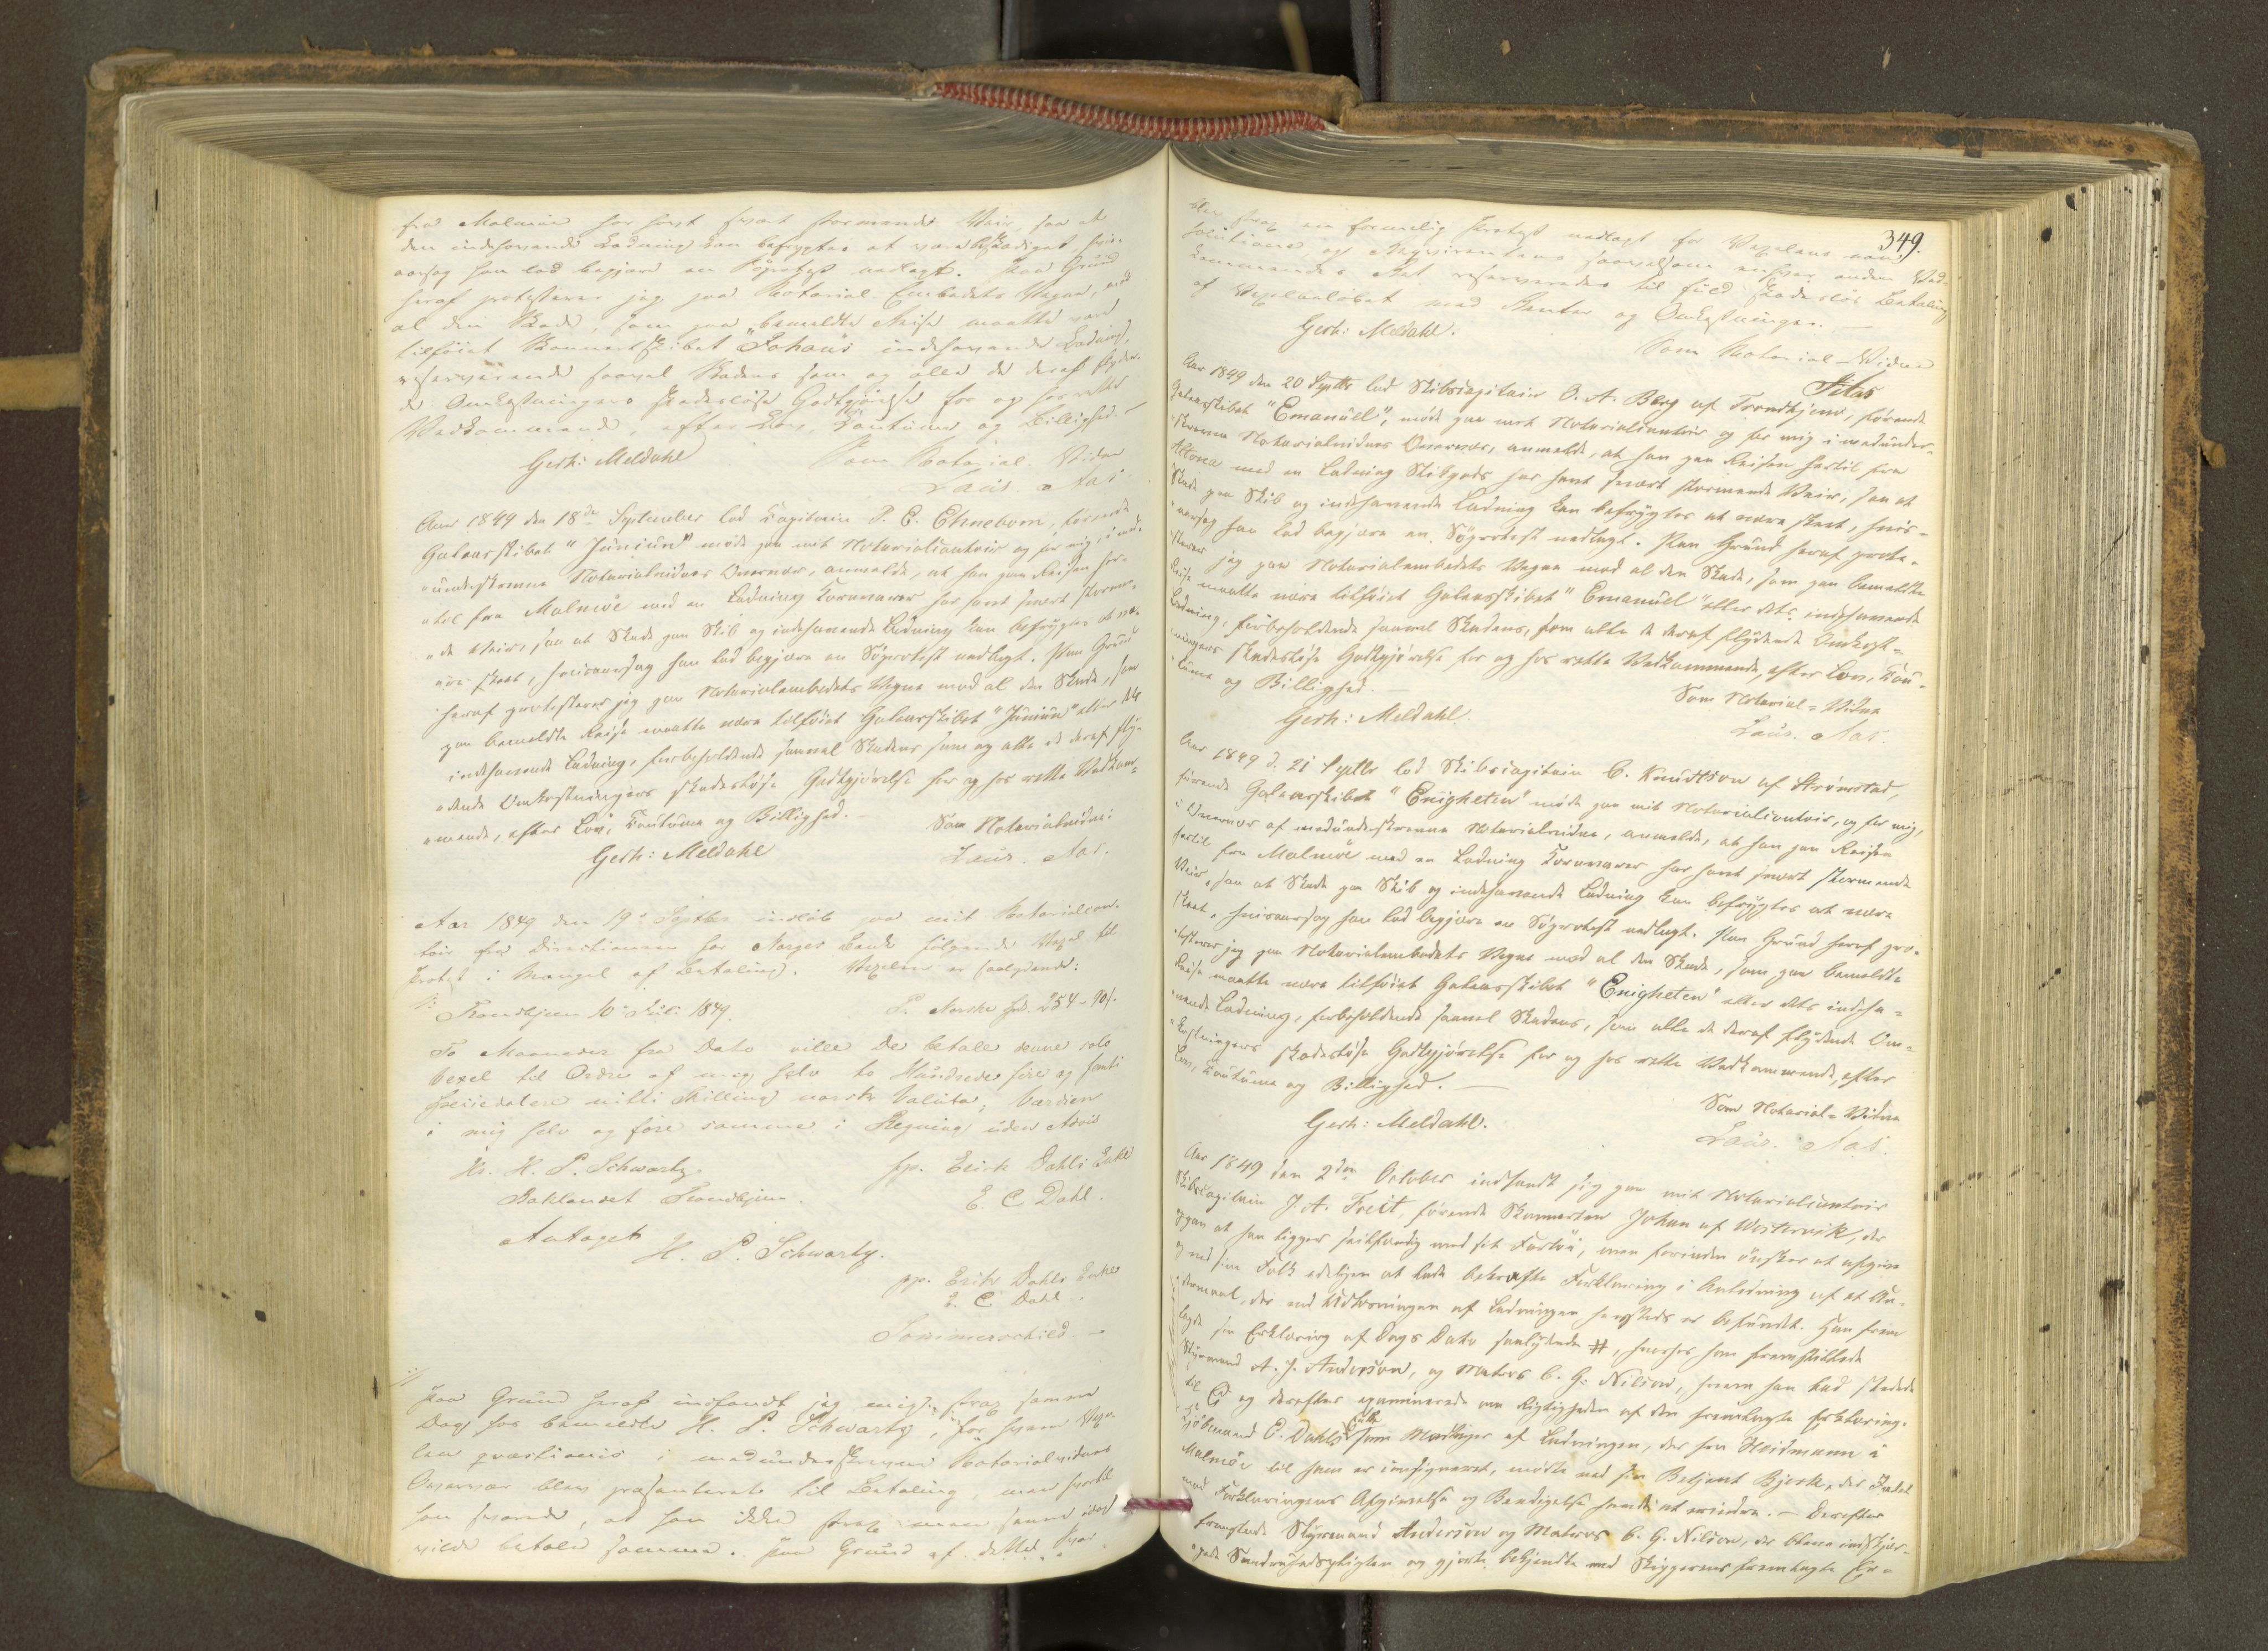 fra Malmöe har havt svært stormende Veir, saa at
den indehavende Ladning kan befrygtes at være beskadiget, hvis-
aarsag han lod begjære en Söprotest nedlagt. Paa Grund
heraf protesterer jeg paa Notarial Embedets Vegne, mod
al den Skade, som paa bemeldte Reise maatte være
tilföiet Skonnertskibet "Johan's" indehavende Ladning,
reserverende saavel Skadens som og alle de deraf flyden-
de Omkostningers skadeslöse Godtgjörelse for og hos rette
Vedkommende, efter Lov, Coutume og Billighed. -
Gerh: Meldahl
Som Notarial Vidne
Laur. Aas.
Aar 1849 den 18de September lod Capitain P. C. Ehnebom, förende
Galeasskibet "Junium" möde paa mit Notarialcontoir og for mig, i med-
"underskrevne Notarialvidnes Overvær, anmelde, at han paa Reisen her-
"til fra Malmöe med en Ladning Kornvarer har havt svært stormen-
"de Veir, saa at Skade paa Skib og indehavende Ladning kan befrygtes at væ-
"re skeet, hvisaarsag han lod begjære en Söprotest nedlagt. Paa Grund
heraf protesterer jeg paa Notarialembedets Vegne mod al den Skade, som
paa bemeldte Reise maatte være tilföiet Galeasskibet "Junium" eller dets
indehavende Ladning, forbeholdende saavel Skadens som og alle de deraf fly-
"dende Omkostningers skadeslöse Godtgjörelse for og hos rette Vedkom-
"mende, efter Lov, Coutume og Billighed. -
Gerh: Meldahl
Som Notarialvidne:
Laur. Aas.
Aar 1849 den 19de Septbr indlöb paa mit Notarialcon-
toir fra Directionen for Norges Bank fölgende Vexel til
Protest i Mangel af Betaling. Vexelen er saalydende:
Trondhjem 10de Juli 1849.
P. Norske Spd. 254 - 90 s.
To Maaneder fra Dato ville De betale denne solo
Vexel til Ordre af mig selv to Hundrede fire og femti
Speciedaler nitti Skilling norsk Valuta, Værdien
i mig selv og före samme i Regning uden Advis
Hr. H. P. Schwartz.
Baklandet Trondhjem.
pp. Erich Dahls Enke
E. C. Dahl.
Antaget
H. P. Schwartz.
pp. Erik Dahls Enke
E. C. Dahl.
Sommerschild. -
Paa Grund heraf indfandt jeg mig strax samme
Dag hos bemeldte H. P. Schwartz, for hvem Vexe-
len qvæstionis i medunderskrevne Notarialvidnes
Overvær blev præsenteret til Betaling, men hvortil
han svarede, at han ikke strax men senere
vilde betale samme. Paa Grund af dette Svar
349.
blev strax en formelig Protest nedlagt for Vexelens non
Solutione, og Reqvirentens saavelsom enhver anden Ved-
kommendes Ret reserverede til fuld skadeslös Betaling
af Vexelbelöbet med Renter og Omkostninger. -
Gerh: Meldahl.
Som Notarial-Vidne
Aar 1849 den 20 Septbr lod Skibscapitain O. A. Berg af Trondhjem, förende
Galeasskibet "Emanuell", möde paa mit Notarialcontoir og for mig i medunder-
"skrevne Notarialvidnes Overvær, anmelde, at han paa Reisen hertil fra
Altona med en Ladning Stikgods har havt svært stormende Veir, saa at
Skade paa Skib og indehavende Ladning kan befrygtes at være skeet, hvis-
"aarsag han lod begjære en Söprotest nedlagt. Paa Grund heraf prote-
"sterer jeg paa Notarialembedets Vegne mod al den Skade, som paa bemeldte
Reise maatte være tilföiet Galeasskibet "Emanuell" eller dets indehavende
Ladning, forbeholdende saavel Skadens, som alle de deraf flydende Omkost-
"ningers skadeslöse Godtgjörelse for og hos rette Vedkommende, efter Lov, Cou-
"tume og Billighed. -
Gerh: Meldahl.
Som Notarial-Vidne
Laur. Aas.
Aar 1849 d. 21 Septbr lod Skibscapitain C. Knudtson af Strömstad,
förende Galeasskibet "Enigheten" möde paa mit Notarialcontoir, og for mig,
i Overvær af medunderskrevne Notarialvidne, anmelde, at han paa Reisen
hertil fra Malmöe med en Ladning Kornvarer har havt svært stormende
Veir, saa at Skade paa Skib og indehavende Ladning kan befrygtes at være
skeet, hvisaarsag han lod begjære en Söprotest nedlagt. Paa Grund heraf pro-
"testerer jeg paa Notarialembedets Vegne mod al den Skade, som paa bemeldte
Reise maatte være tilföiet Galeasskibet "Enigheten" eller dets indeha-
"vende Ladning, forbeholdende saavel Skadens, som alle de deraf flydende Om-
"kostningers skadeslöse Godtgjörelse for og hos rette Vedkommende, efter
Lov, Coutume og Billighed. -
Gerh: Meldahl.
Som Notarial-Vidne
Laur. Aas.
Aar 1849 den 2den October indfandt sig paa mit Notarialcontoir
Skibscapitain J. A. Freit, förende Skonnerten Johan af Westervik, der
opgav at han ligger seilfærdig med sit Fartöi, men forinden önsker at afgive
og ved sine Folk edeligen at lade bekræfte Forklaring i Anledning af et Un-
dermaal, der ved Udlosningen af Ladningen hersteds er befundet. Han frem
lagde sin Erklæring af Dags Dato saalydende #, hvorhos han fremstillede
Styrmand A. J. Anderson, og Matros C. G. Nilson, hvem han bad stedede
til Ed og derefter examinerede om Rigtigheden af den fremlagte Erklæring.
Kjöbmand E. Dahls Enke som Modtager af Ladningen, der fra Heidmann i
Malmöe til ham er consigneret, mödte ved sin Betjent Bjerke, der Intet
mod Forklaringens Afgivelse og Beedigelse havde at erindre. - Derefter
fremstod Styrmand Anderson og Matros C. G. Nilson, der bleve indskjær-
"pede Sandhedspligten og gjorte bekjendte med Skipperens fremlagte Er-